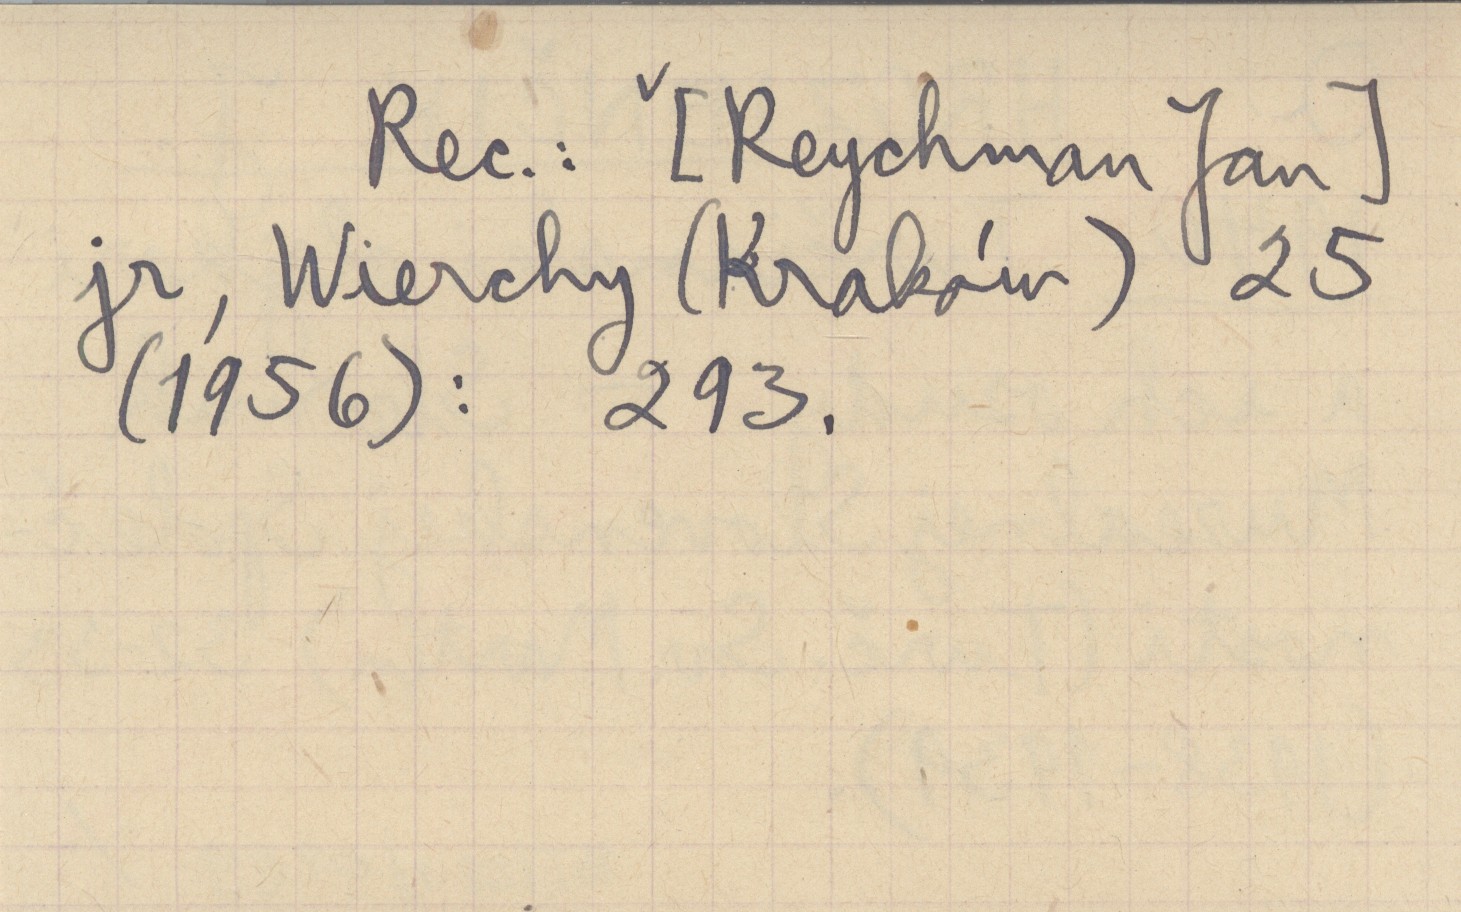 Rec.: ˅[Reychman Jan]
jr, Wierchy (Kraków) 25
(1956): 293.